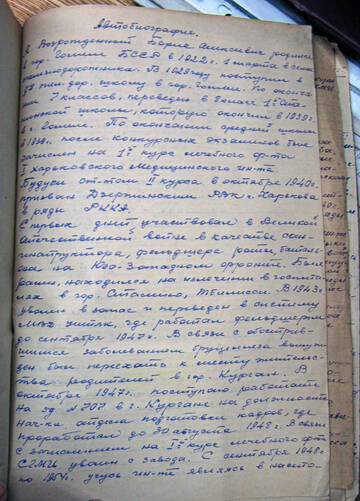 Автобиография.
Я, Возрожденный Борис Алексеевич родился
в гор. Гомеле БССР в 1922 г. 1 марта в семье
железнодорожника. В 1928 году поступил в
жел. дор. школу в гор. Гомеле. По оконча
7 классов, переведен в
школы, которую окончил в 1939 г.
в г. Гомеле. По окончании средней школы
в после конкурсных экзаменов был
зачислен на 1й курс лечебного ф-та
I Харьковского Медицинского ин-та
Будучи ст-том II курса в октябре 1940 г.
призван Дзержинским РВК г. Харькова
в ряды РККА.
С первых дней участвовал в Великой
Отечественной войне в качестве сан-
инструктора, фельдшера роты, баталь-
она на Юго-Западном фронте. Был
ранен, находился на излечении в госпита
лях в гор. Сталино, Тбилиси. В 1943 г.
уволен в запас и переведен в систему
где работал фельдшером
до сентября 1947 г. В связи с обострив-
шимся заболеванием вынуж
ден был переехать к месту жительс-
тва родителей в гор. Курган. В
октябре 1947 г. поступил работать
на з-д № 707 в г. Кургане на должность
нач-ка отдела подготовки кадров, где
проработал до 30 августа 1948 г. В связи
с зачислением на I й курс лечебного ф-та
СГМИ уволен с завода. С сентября 1948 г.
по 1954 г. учусь ин-те являясь в настоя-